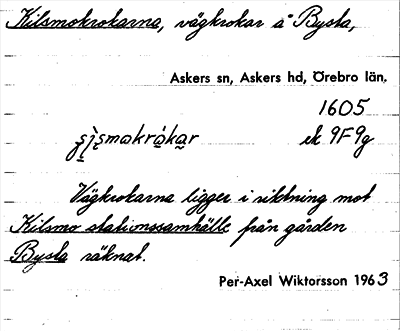 Kilsmokrokarna, vägkrokar å Bysta,
Askers sn, Askers hd, Örebro län.
1605
ek 9F9g
Vägkrokarna ligger i riktning mot
Kilsmo stationssamhälle från gården
Bysta räknat.
Per-Axel Wiktorsson 1963